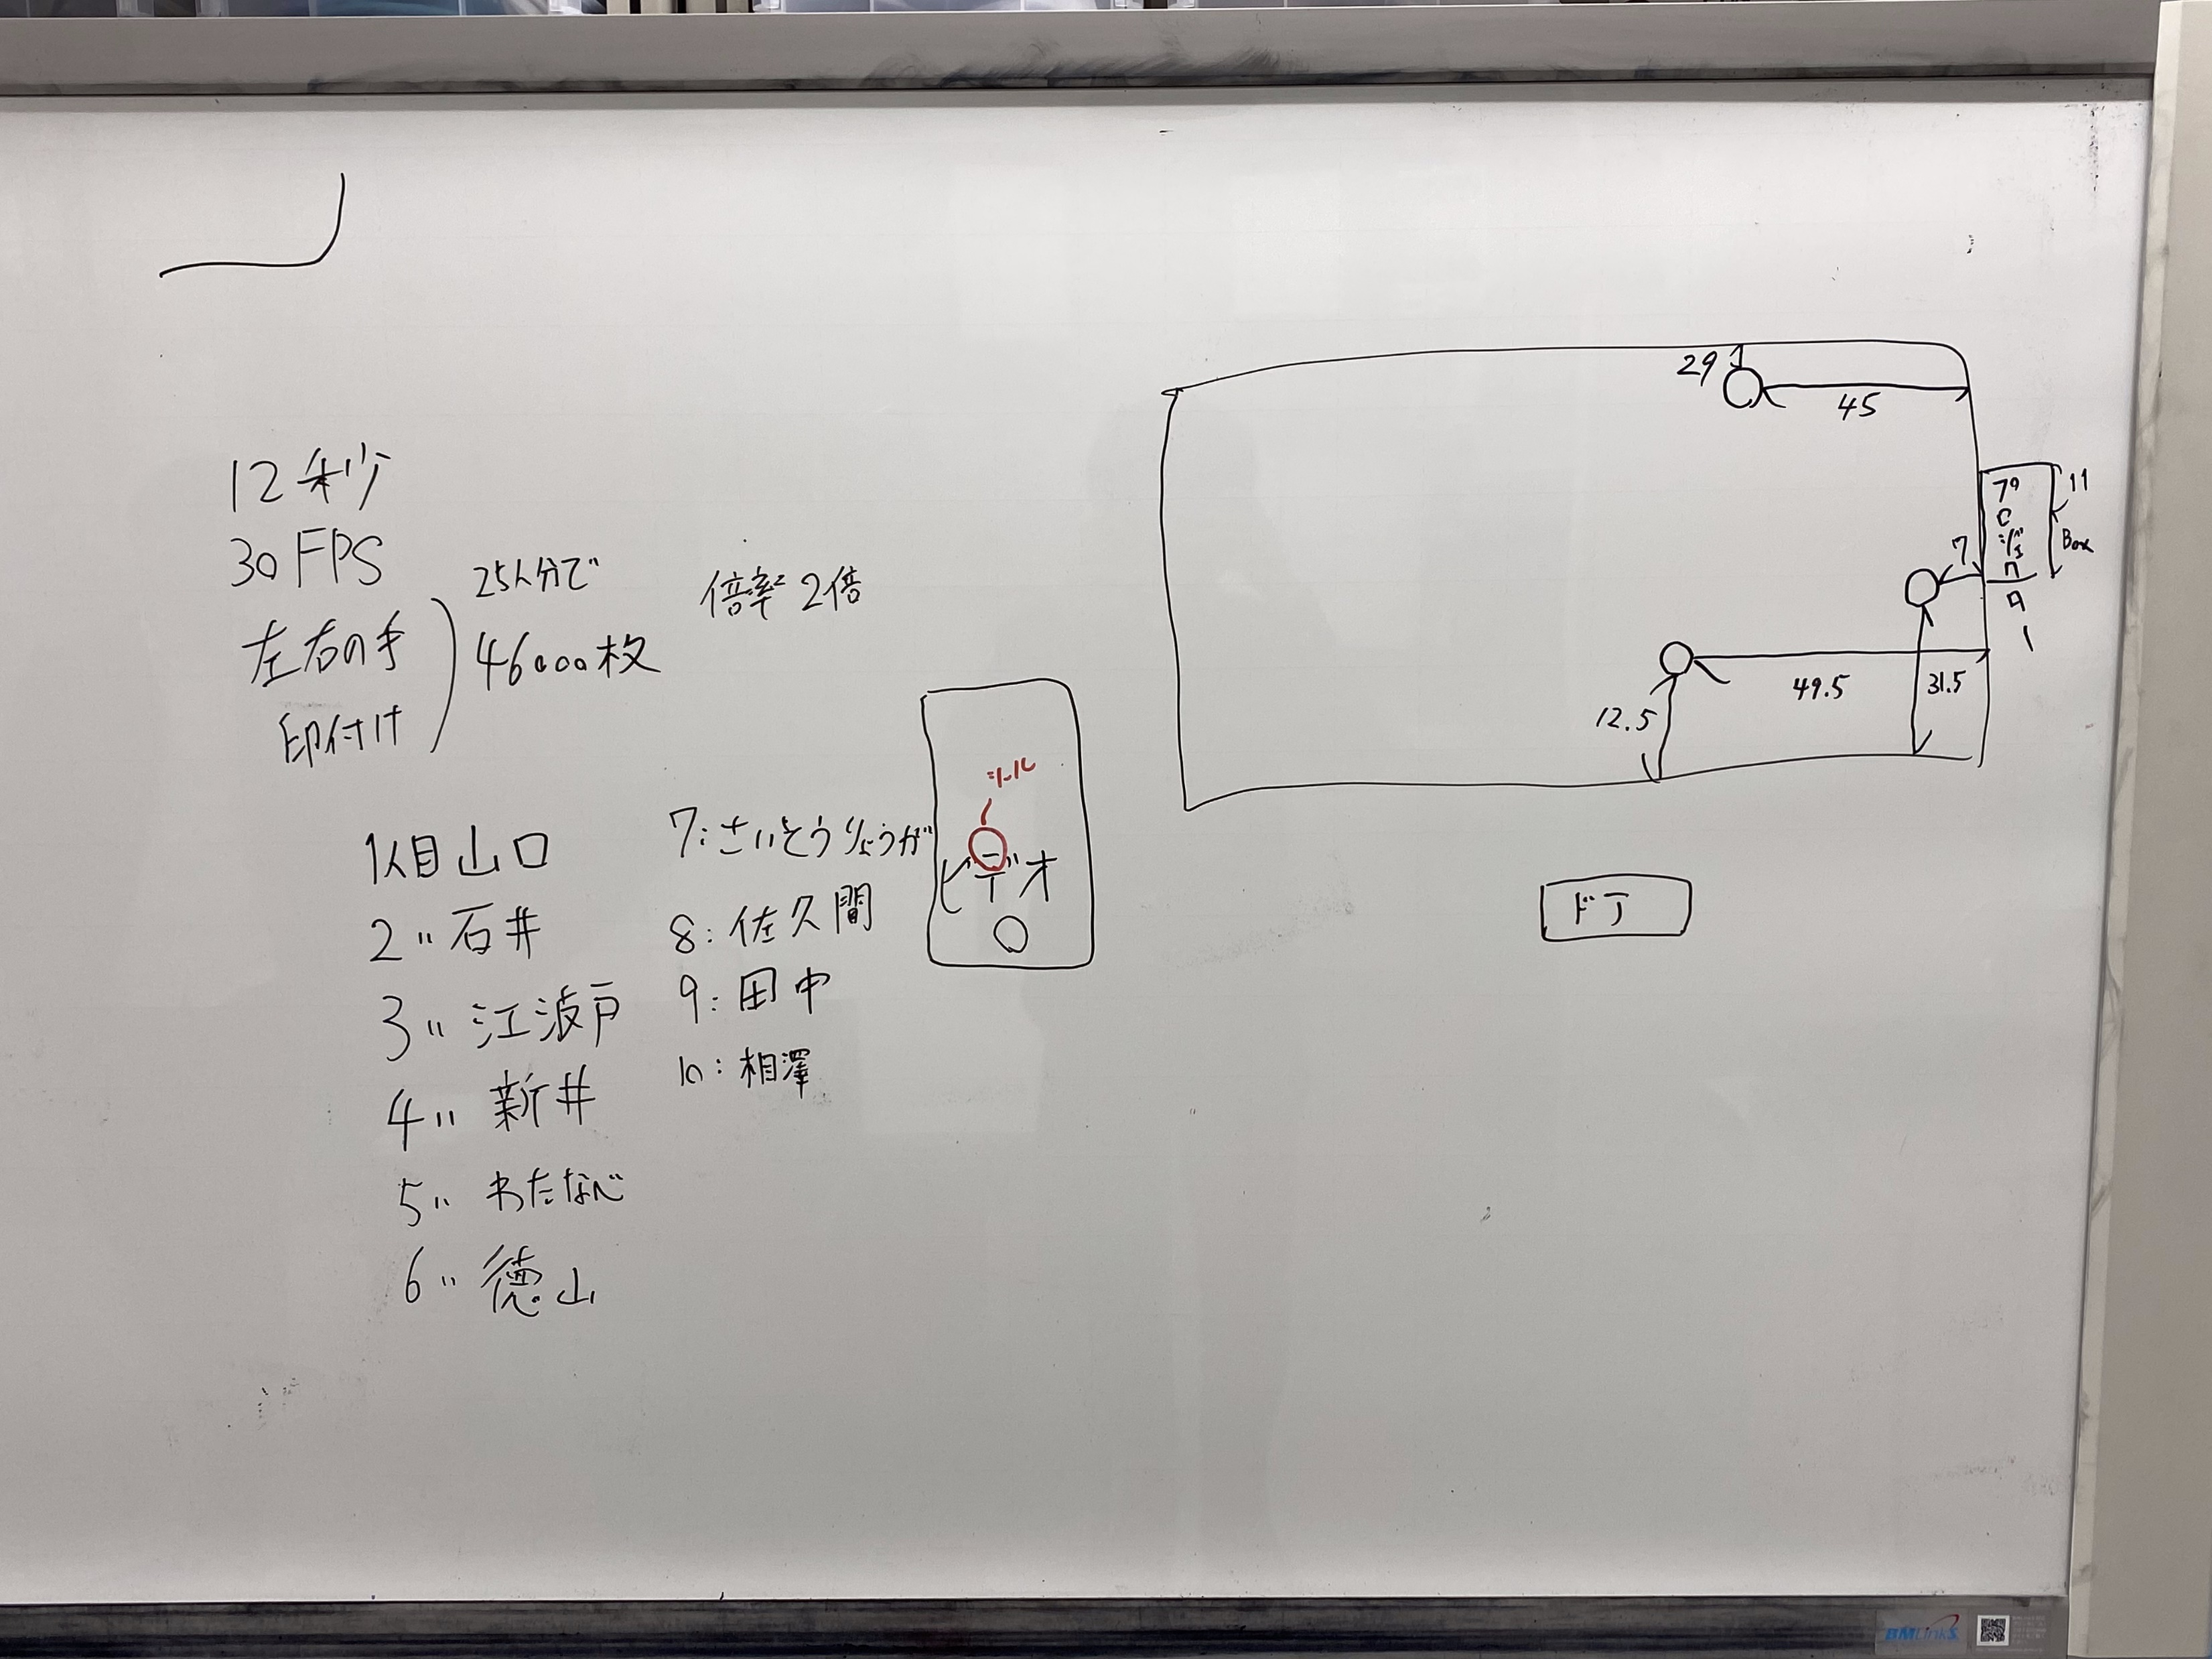 12秒
30FPS
左右の手
印付け
25人分で
46000枚
倍率2倍
1人目 山口
2〃 石井
3〃 江波戸
4〃 新井
5〃 わたなべ
6〃 徳山
7:さいとうりょうが
8:佐久間
9:田中
10:相澤
シール
ビデオ
29
45
プロジェクター
11
Box
7
49.5
31.5
12.5
ドア
BMLinkS